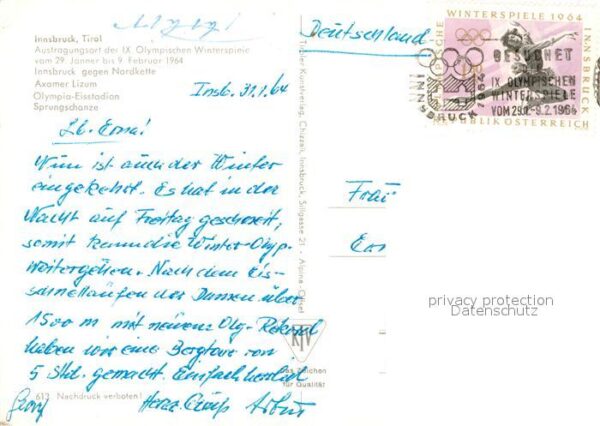 Innsbruck, Tirol
Austragungsort der IX. Olympischen Winterspiele
vom 29. Jänner bis 9. Februar 1964
Innsbruck gegen Nordkette
Axamer Lizum
Olympia-Eisstadion
Sprungschanze
Deutschland
Insb. 31.1.64
Lb. Erna!
Nun ist auch der Winter
eingekehrt. Es hat in der
Nacht auf Freitag geschneit,
somit kann die Winter-Olymp.
weitergehen. Nach dem Eis-
schnellaufen der Damen über
1500 m mit neuem Olg. Rekord
haben wir eine Bergtour von
5 Std. gemacht. Einfach herrlich
Georg Herzl. Grüß
613 Nachdruck verboten!
Tiroler Kunstverlag, Chizzali, Innsbruck, Sillgasse 21 - Alpina-Offset
KTV
Das Zeichen
für Qualität
WINTERSPIELE 1964
INNSBRUCK
REPUBLIK ÖSTERREICH
BESUCHET
IX. OLYMPISCHEN
WINTERSPIELE
VOM 29.1.-9.2.1964
Frau
privacy protection
Datenschutz